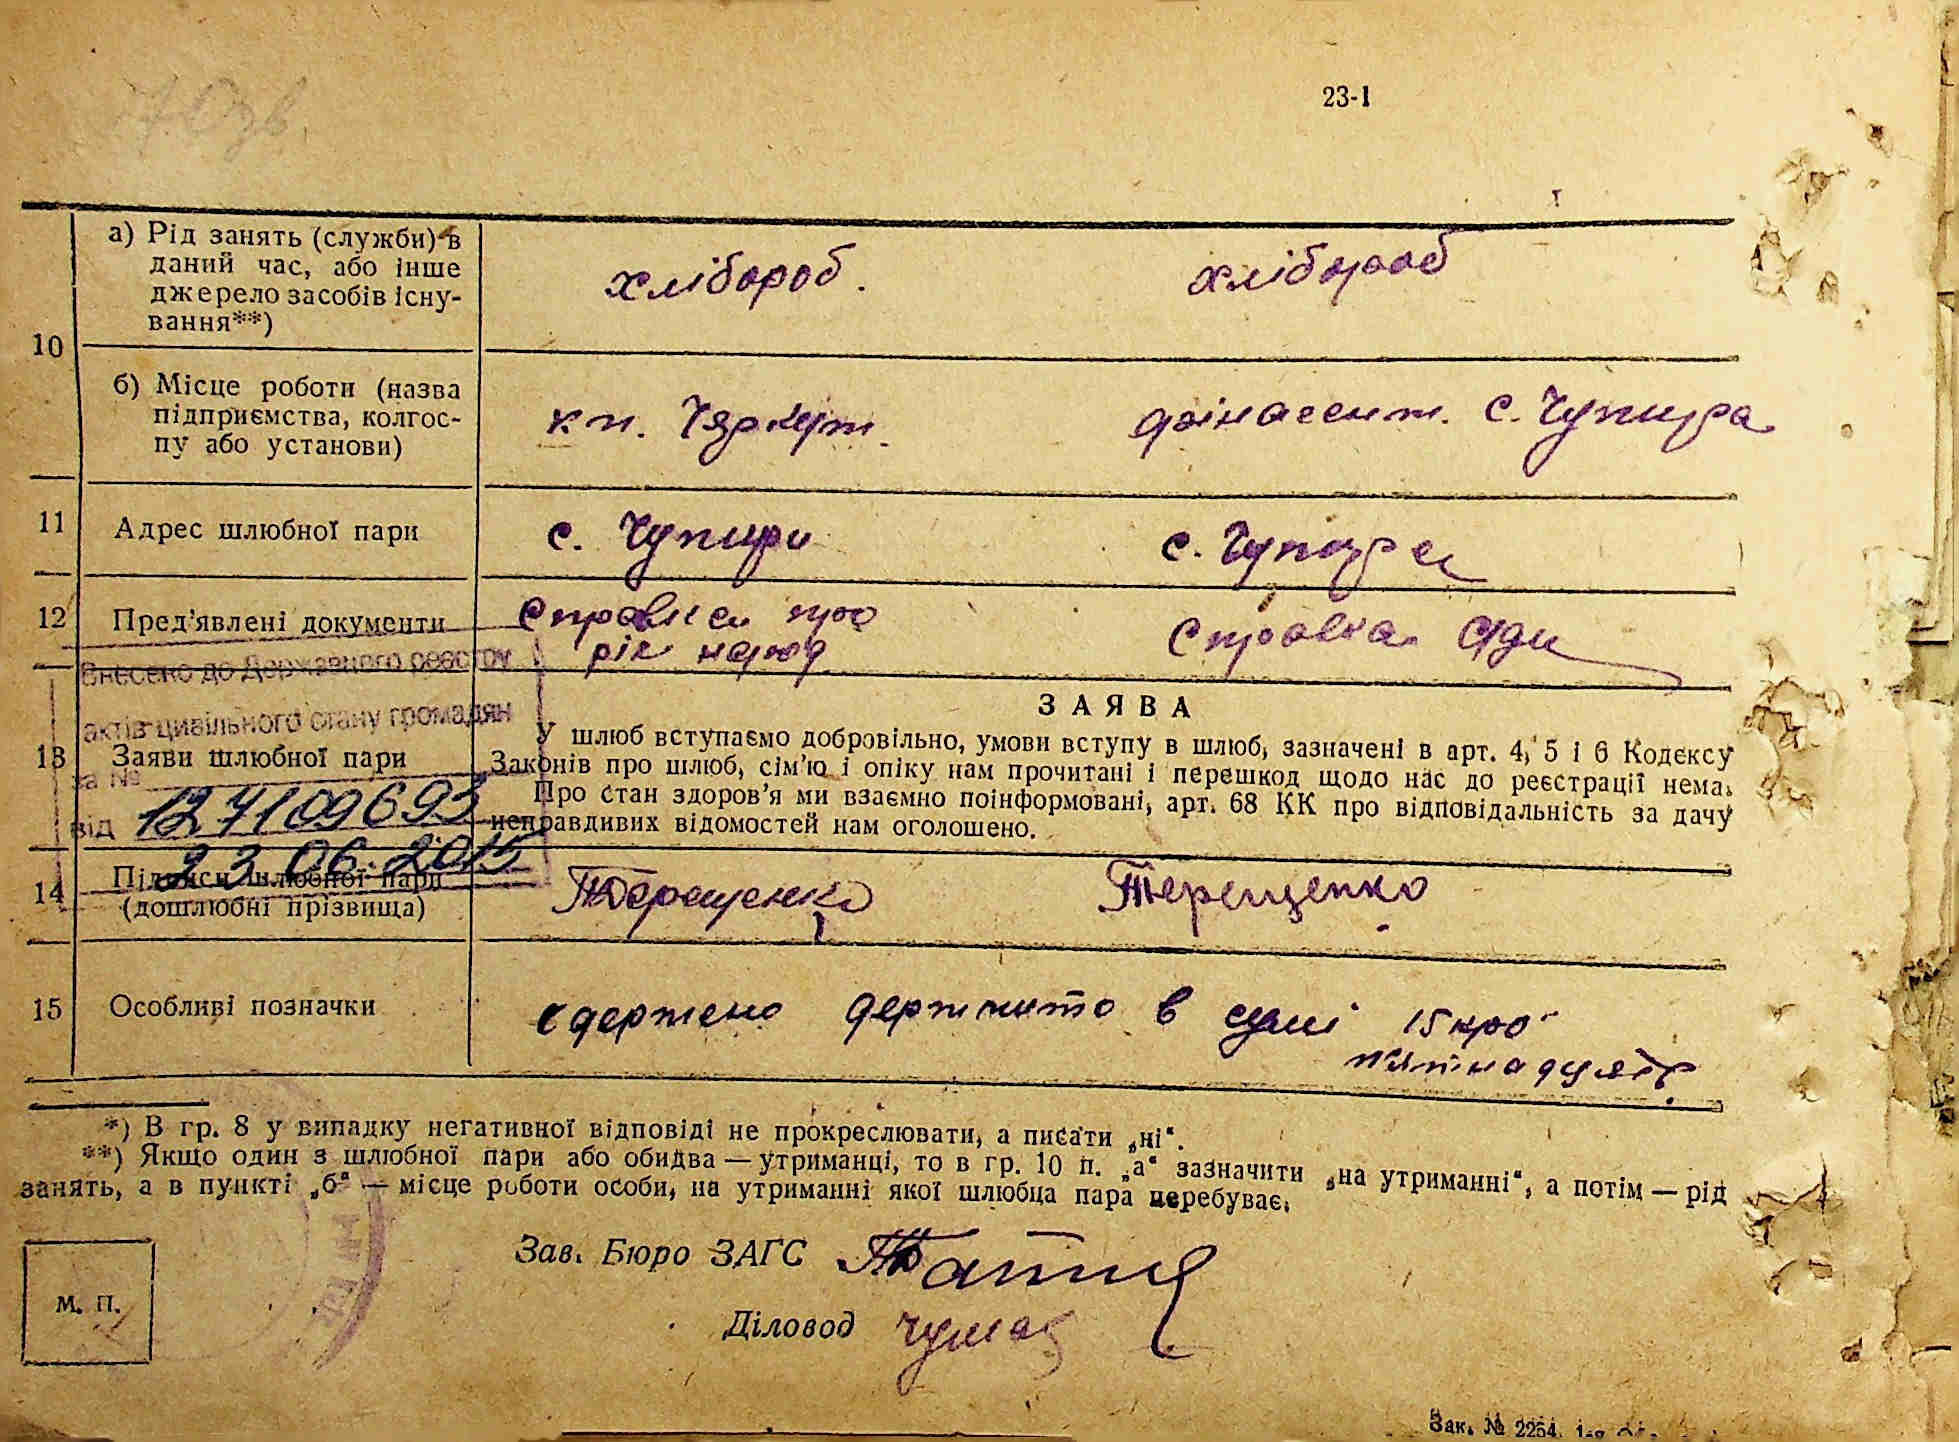 23-1
а) Рід занять (служби) в
даний час, або інше
джерело засобів існу-
вання**)
хлібороб.
хлібороб
10
б) Місце роботи (назва
підприємства, колгос-
пу або установи)
с. Чупира
11
Адрес шлюбної пари
с. Чупири
с. Чупира
12
Пред'явлені документи
Справка про
рік народ
Справка
Внесено до Державного реєстру
актів цивільного стану громадян
за № 127109693
від 23.06.2015
13
Заяви шлюбної пари
ЗАЯВА
У шлюб вступаємо добровільно, умови вступу в шлюб, зазначені в арт. 4, 5 і 6 Кодексу
Законів про шлюб, сім'ю і опіку нам прочитані і перешкод щодо нас до реєстрації нема.
Про стан здоров'я ми взаємно поінформовані, арт. 68 КК про відповідальність за дачу
неправдивих відомостей нам оголошено.
14
Підписи шлюбної пари
(дошлюбні прізвища)
Терещенко
Терещенко
15
Особливі позначки
одержено держмито в сумі 15 кро
п'ятнадцять
*) В гр. 8 у випадку негативної відповіді не прокреслювати, а писати „ні“.
**) Якщо один з шлюбної пари або обидва — утриманці, то в гр. 10 п. „а“ зазначити „на утриманні“, а потім — рід
занять, а в пункті „б“ — місце роботи особи, на утриманні якої шлюбна пара перебуває.
Зав. Бюро ЗАГС
Діловод
М. П.
Зак. № 2254.